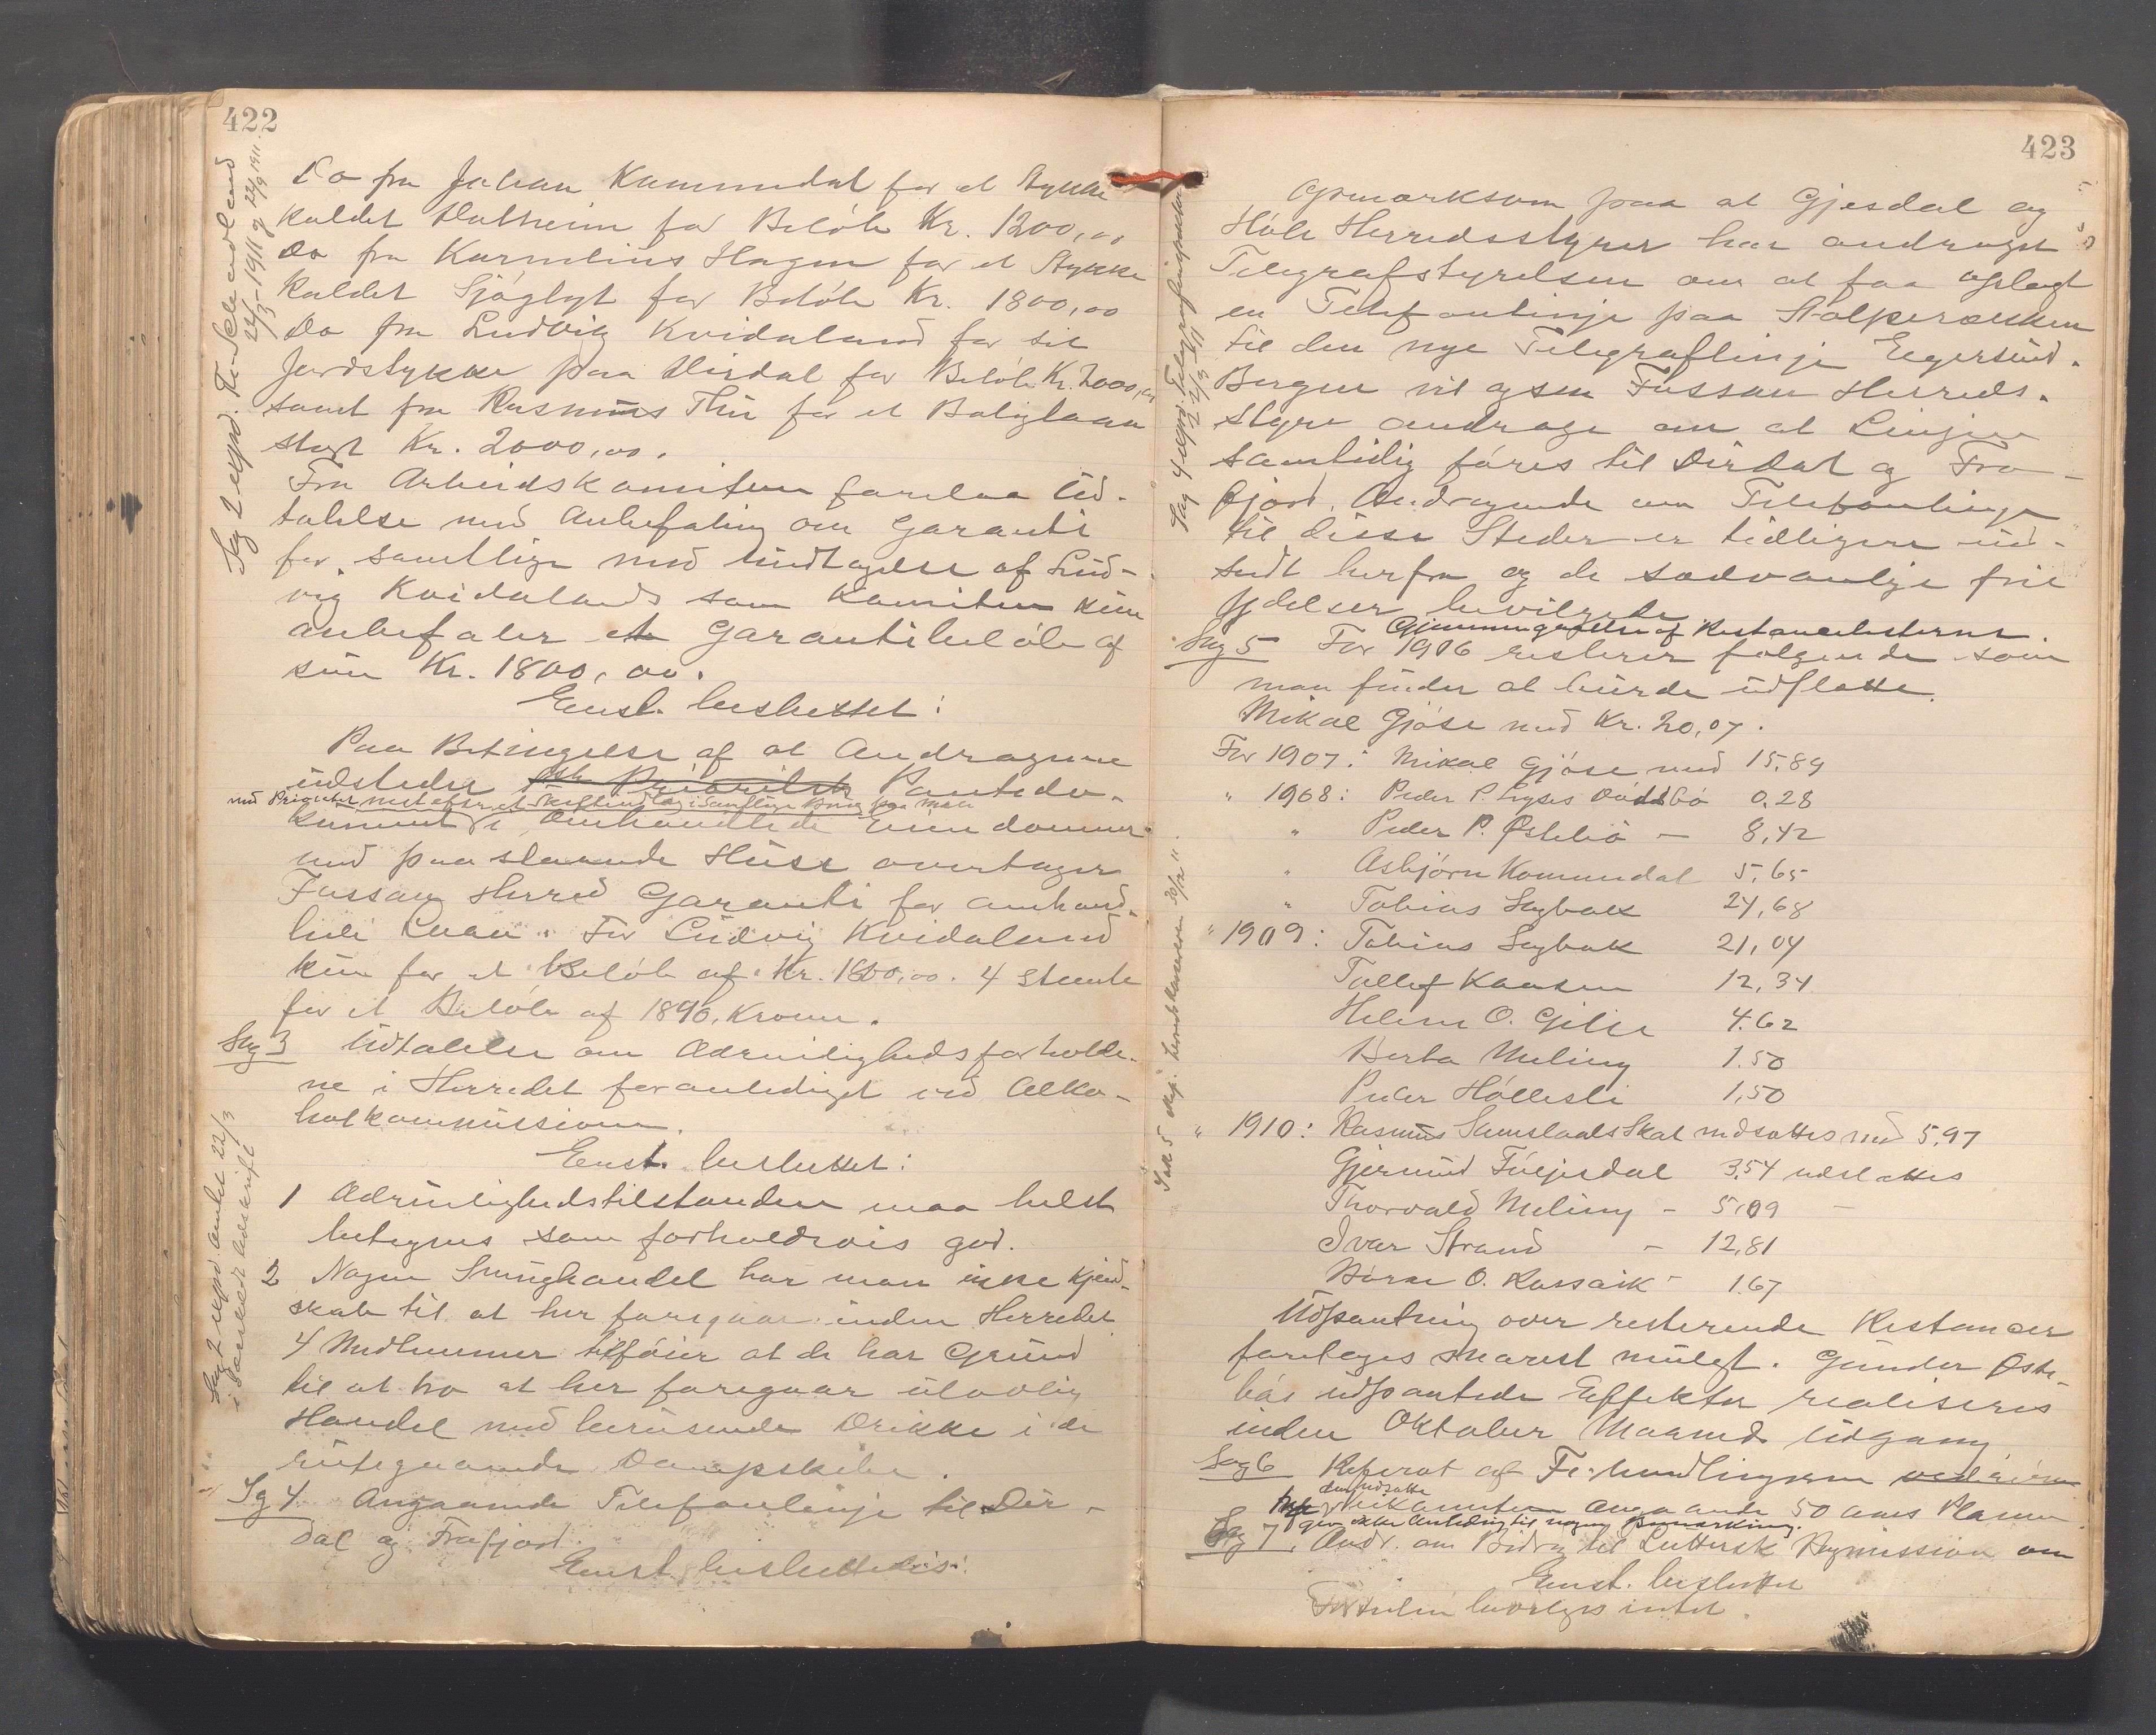 422
Do fra Johan Kommedal for et Stykke
kaldet Slettheim for Beløb Kr. 1200,00
Do fra Kornelius Hagen for et Stykke
kaldet Sjøglyt for Beløb Kr. 1800,00
Do fra Ludvig Kvidaland for sit
Jordstykke paa Dirdal for Beløb Kr. 2000,00
samt fra Rasmus Thu for et Boliglaan
stort Kr. 2000,00.
Fra Arbeidskomiteen forelaa Ud-
talelse med Anbefaling om Garanti
for samtlige med Undtagelse af Lud-
vig Kvidalands som Komiteen kun
anbefaler et Garantibeløb af
sum Kr. 1800,00.
Enst. besluttet:
Paa Betingelse af at Andragerne
udsteder 1ste Prioritets Pantedo-
med Prioritet næst efter
kument i omhandlede Eiendomme
med paastaaende Huse overtager
Fossan Herred Garanti for omhand-
lede Laan. For Ludvig Kvidaland
kun for et Beløb af Kr. 1800,00. 4 stemte
for et Beløb af 1890, Kroner.
Sag 3 Udtalelse om Ædruelighedsforholde-
ne i Herredet foranlediget ved Alko-
holkommissionen.
Enst. besluttet:
1 Ædruelighedstilstanden maa helst
betegnes som forholdsvis god.
2 Nogen Smughandel har man ikke Kjend-
skab til at her foregaar inden Herredet
4 Medlemmer tilføier at de har Grund
til at tro at her foregaar ulovlig
Handel med berusende Drikke i de
rutegaaende Dampskibe.
Sag 4 Angaaende Telefonlinje til Dir-
dal og Frafjord.
Enst. besluttedes:
Sag 2 exped. til
22/3-1911 og 22/9 1911
exped. amtet 22/3
i særskilt udskrift
423
Opmærksom paa at Gjesdal og
Høle Herredsstyrer har andraget
Telegrafstyrelsen om at faa oplagt
en Telefonlinje paa Stolperækken
til den nye Telegraflinje Egersund-
Bergen vil ogsaa Fossan Herreds-
styre andrage om at Linjen
samtidig føres til Dirdal og Fra-
fjord. Andragende om Telefonlinje
til disse Steder er tidligere ud-
sendt herfra og de sædvanlige frie
ydelser bevilgede
Gjennemgaaelse af Restancelisterne.
Sag 5 For 1906 resterer følgende som
man finder at burde udslette.
Mikal Gjøse med Kr. 20,07.
For 1907: Mikal Gjøse med 15,89
" 1908: Peder P. 0,28
" Peder P. Østebø — 8,42
" Asbjørn Kommedal 5,65
" Tobias Sagbak 24,68
" 1909: Tobias Sagbak 21,04
Tollef Hansen 12,34
Helene O. Gilje 4.62
Berta Meling 1.50
Peder Høllesli 1,50
" 1910: Rasmus Samslaals Skat nedsættes med 5,97
Gjermund Fuejesdal 3.54 udslættes
Thorvald Meling - 5,09 —
Ivar Strand — 12,81
O. Rossavik - 1.67
Udpantning over resterende Restancer
foretages snarest muligt. Gunder Øste-
bøs udpantede Effekter realiseres
inden Oktober Maaneds Udgang.
Sag 6 Referat af Forhandlingerne
angaaende 50 aars Planen
giver ikke Anledning til nogen Bemærkning.
Sag 7. Andr. om Bidrag til Luthersk Bymission om
Enst. besluttet
Fortiden bevilges intet.
Sag 4 exped. Telegrafinspektøren
Sak 5 exp. herredskassereren 30/12 11.